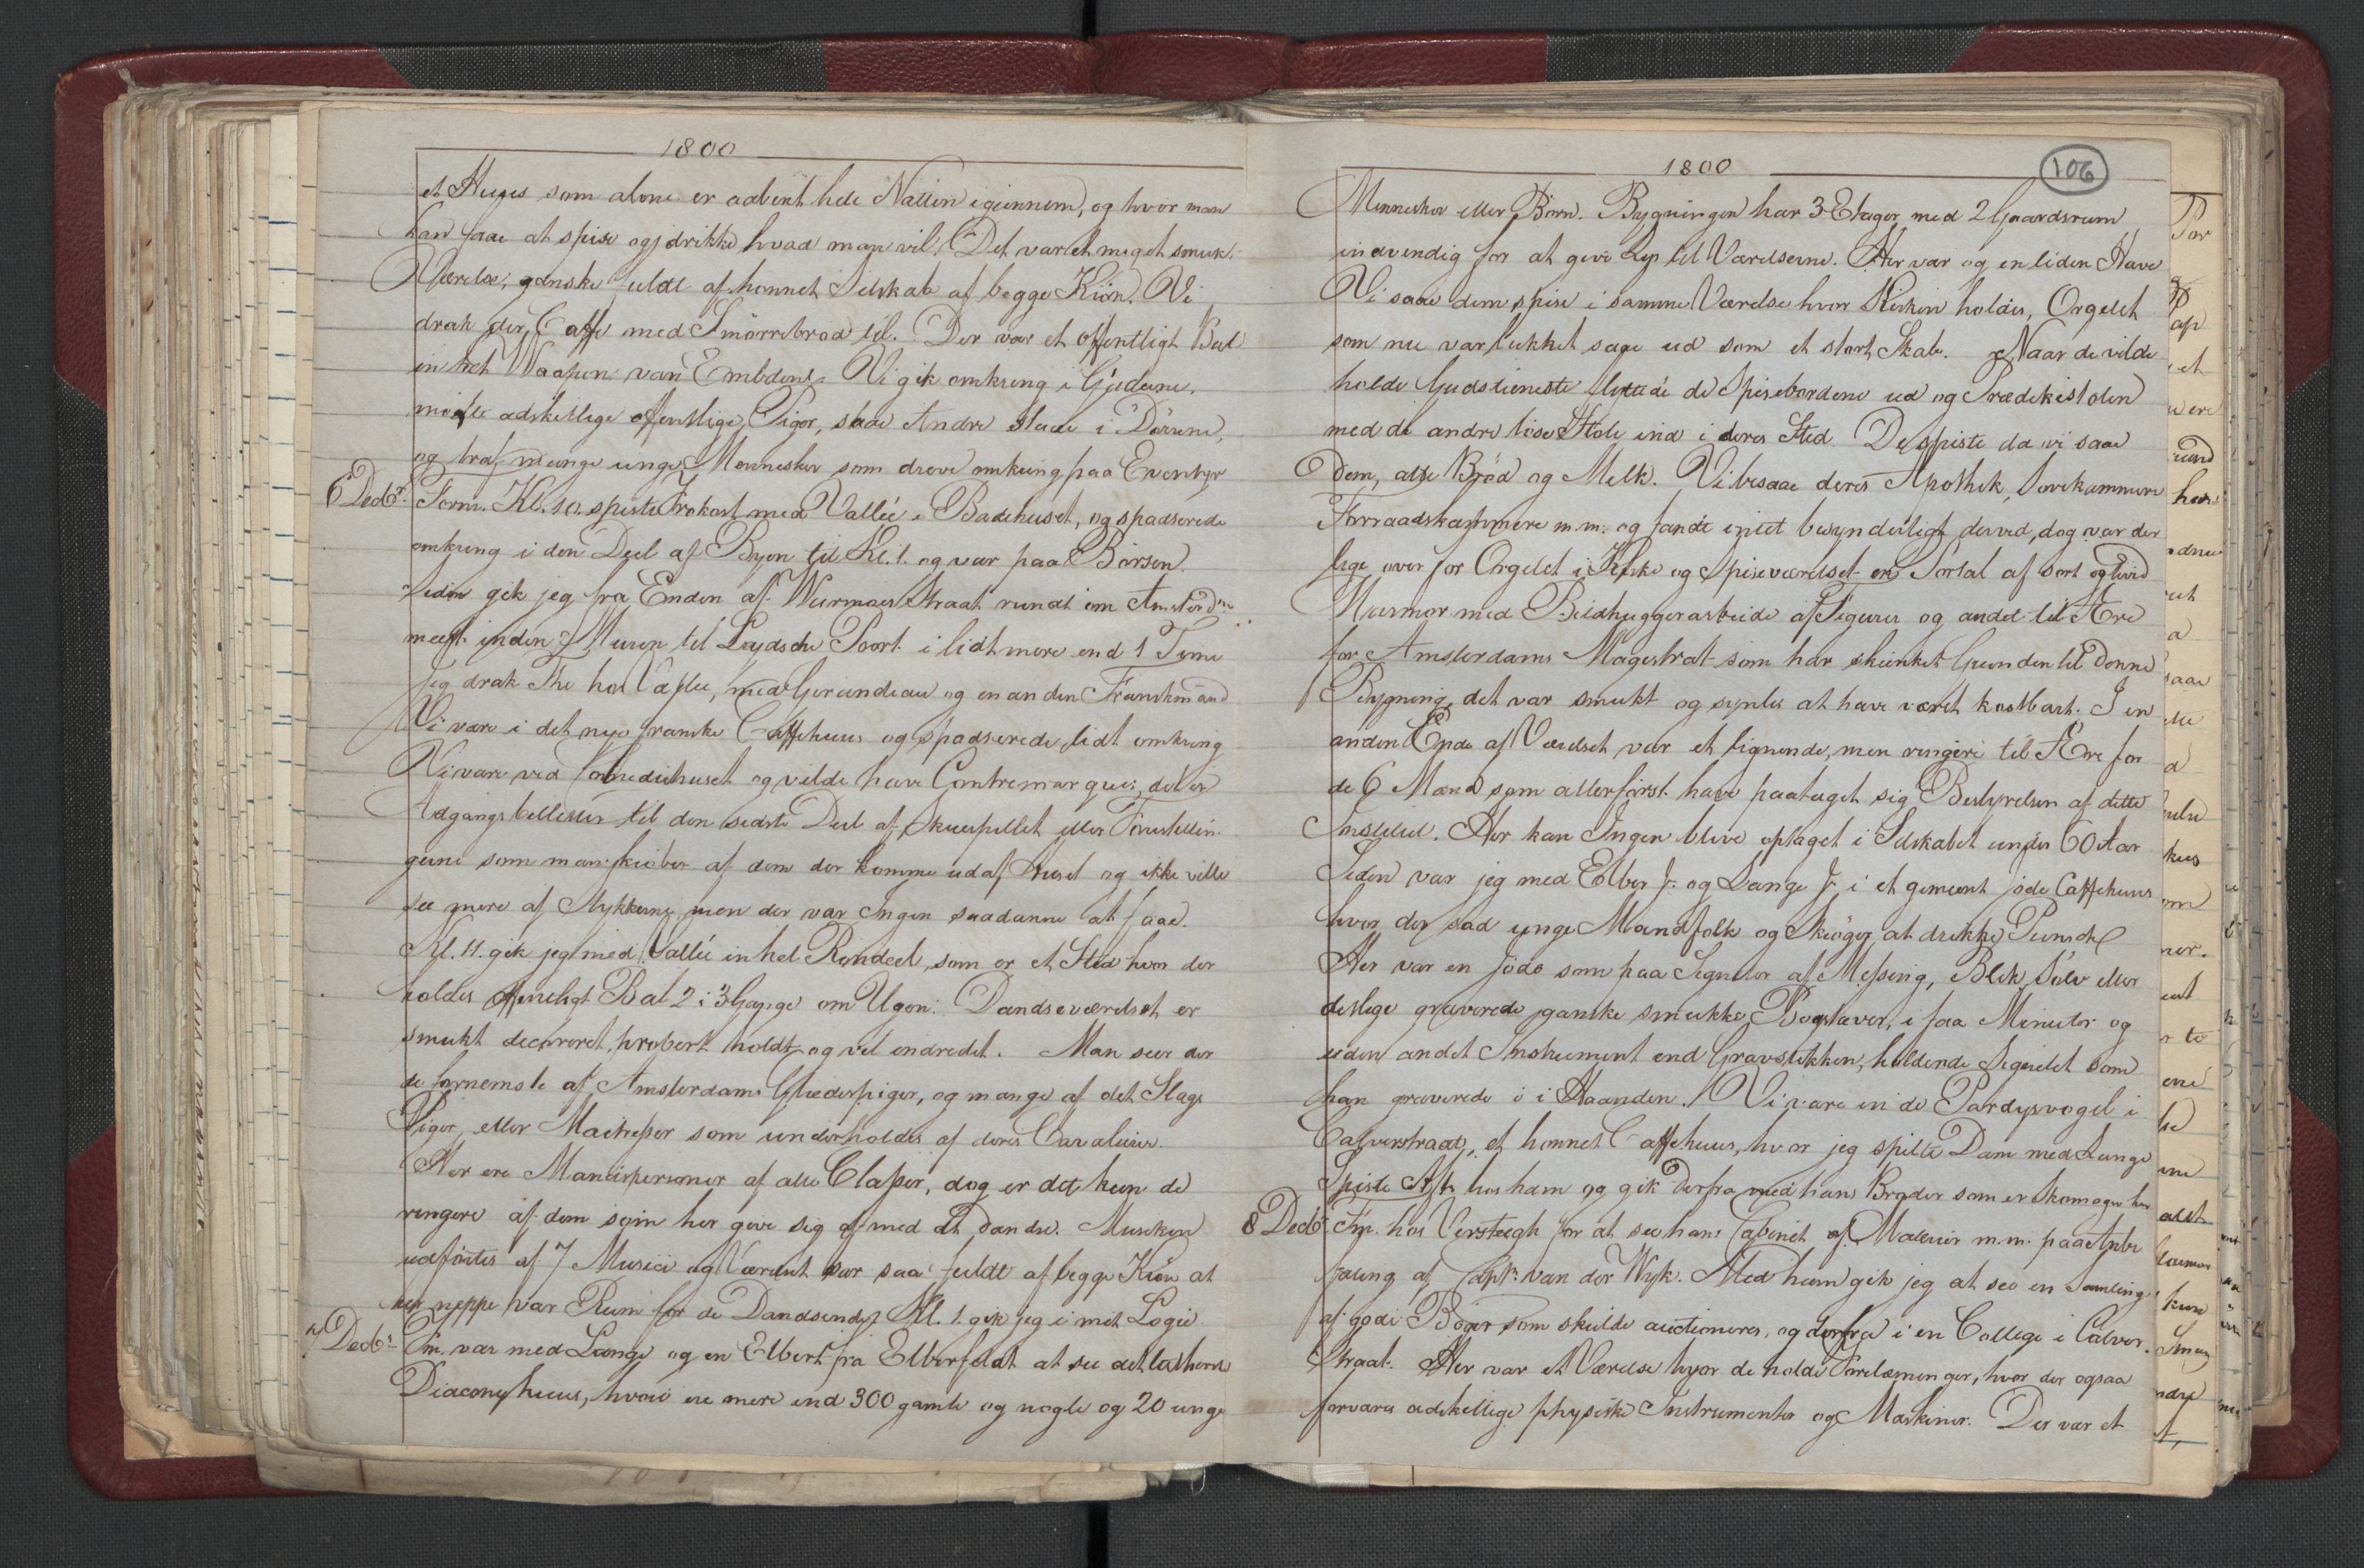 1800
et Huus som alene er aabent hele Natten igiennem, og hvor man
kan faae at spise og drikke hvad man vil. Det var et meget smukt
Værelse, ganske fuldt af honnet Selskab af begge Kiön. Vi
drak der Caffe med Smörrebrod til. Der var et offentligt Bal
in het Waapen van Embden. Vi gik omkring i Gaderne,
mödte adskillige offentlige Piger, saae Andre staae i Dörrene,
og traf mange unge Mennesker som dreve omkring paa Eventyr
6 Decbr. Form. Kl. 10. spiste Frokost med Vallée i Badehuset, og spadserede
omkring i den Deel af Byen til Kl. 1. og var paa Börsen.
Siden gik jeg fra Enden af Warmoes Straat rundt om Amsterdm
meest inden Muren til Leydsche Poort i lidt mere end 1 Time
Jeg drak The hos Vallée, med Gerundeau og en anden Franskmand
Vi vare i det nye franske Caffehuus og spadserede lidt omkring
Vi vare ved Comediehuset og vilde have Contremarques, det er
Adgangsbilletter til den sidste Deel af Skuespillet eller Forestillin
gerne som man kiöber af dem der komme ud af Huset og ikke ville
see mere af Stykkerne, men der var Ingen saadanne at faae.
Kl. 11. gik jeg med Vallée in het Rondeel, som er et Sted hvor der
holdes offentligt Bal 2 i 3 Gange om Ugen. Dandseværelset er
smukt decoreret, propert holdt og vel indredet. Man seer der
de fornemste af Amsterdams Glædespiger, og mange af det Slags
Piger, eller Maitresser som underholdes af deres Cavalierer.
Her ere Mandspersoner af alle Classer, dog er det kun de
ringere af dem som her give sig af med at dandse. Musiken
udförtes af 7 Musici og Værelset var saa fuldt af begge Kiön at
der neppe var Rum for de Dandsende. Kl. 1. gik jeg i mit Logie
7 Decbr. Fm. var med Lange og en Elbert fra Elberfeldt at see det lutherske
Diaconyhuus, hvori ere mere end 300 gamle og nogle og 20 unge
1800
106
Mennesker eller Börn. Bygningen har 3 Etager med 2 Gaardsrum
indvendig for at give Lys til Værelserne. Her var og en liden Have
Vi saae dem spise i samme Værelse hvor Kirken holdes, Orgelet
som nu var lukket saae ud som et stort Skab. Naar de vilde
holde Gudstieneste flyttede de Spisebordene ud og Prædikestolen
med de andre löse Stole ind i deres Sted. De spiste da vi saae
Dem, alle Bröd og Melk. Vi besaae deres Apothek, Sovekammere
Forraadskammere m.m. og fandt intet besynderligt derved, dog var der
lige over for Orgelet i Kirke og Spiseværelset en Portal af sort og hvid
Marmor med Bildhuggerarbeide af Figurer og andet til Ære
for Amsterdams Magistrat som har skienket Grunden til denne
Bygning, det var smukt og syntes at have været kostbart. I en
anden Ende af Værelset var et lignende, men ringere til Ære for
de 6 Mænd som allerförst have paataget sig Bestyrelsen af dette
Institut. Her kan Ingen blive optaget i Selskabet under 60 Aar
Siden var jeg med Elber Jr. og Lange Jr. i et gemeent jöde Caffehuus
hvor der sad unge Mandfolk og Skiöger at drikke Punsch
Her var en Jöde som paa Signeter af Messing, Blik, Sölv eller
deslige graverede ganske smukke Bogstaver, i faa Minuter og
uden andet Instrument end Gravstikken, holdende Signetet som
han graverede i i Haanden. Vi vare in de Paradysvogel i
Calverstraat, et honnet Caffehuus, hvor jeg spilte Dam med Lange
Spiste Aft. hos ham og gik derfra med hans Broder som er Skomager her
8 Decbr. Fm. hos Versteegh for at see hans Cabinet af Malerier m.m. paa Anbe
faling af Capt. van der Wyk. Med ham gik jeg at see en Samling
af gode Böger som skulde auctioneres, og derfra i en College i Calver
Straat. Her var et Værelse hvor de holde Forelæsninger, hvor der ogsaa
forvares adskillige physiske Instrumenter og Maskiner. Der var et